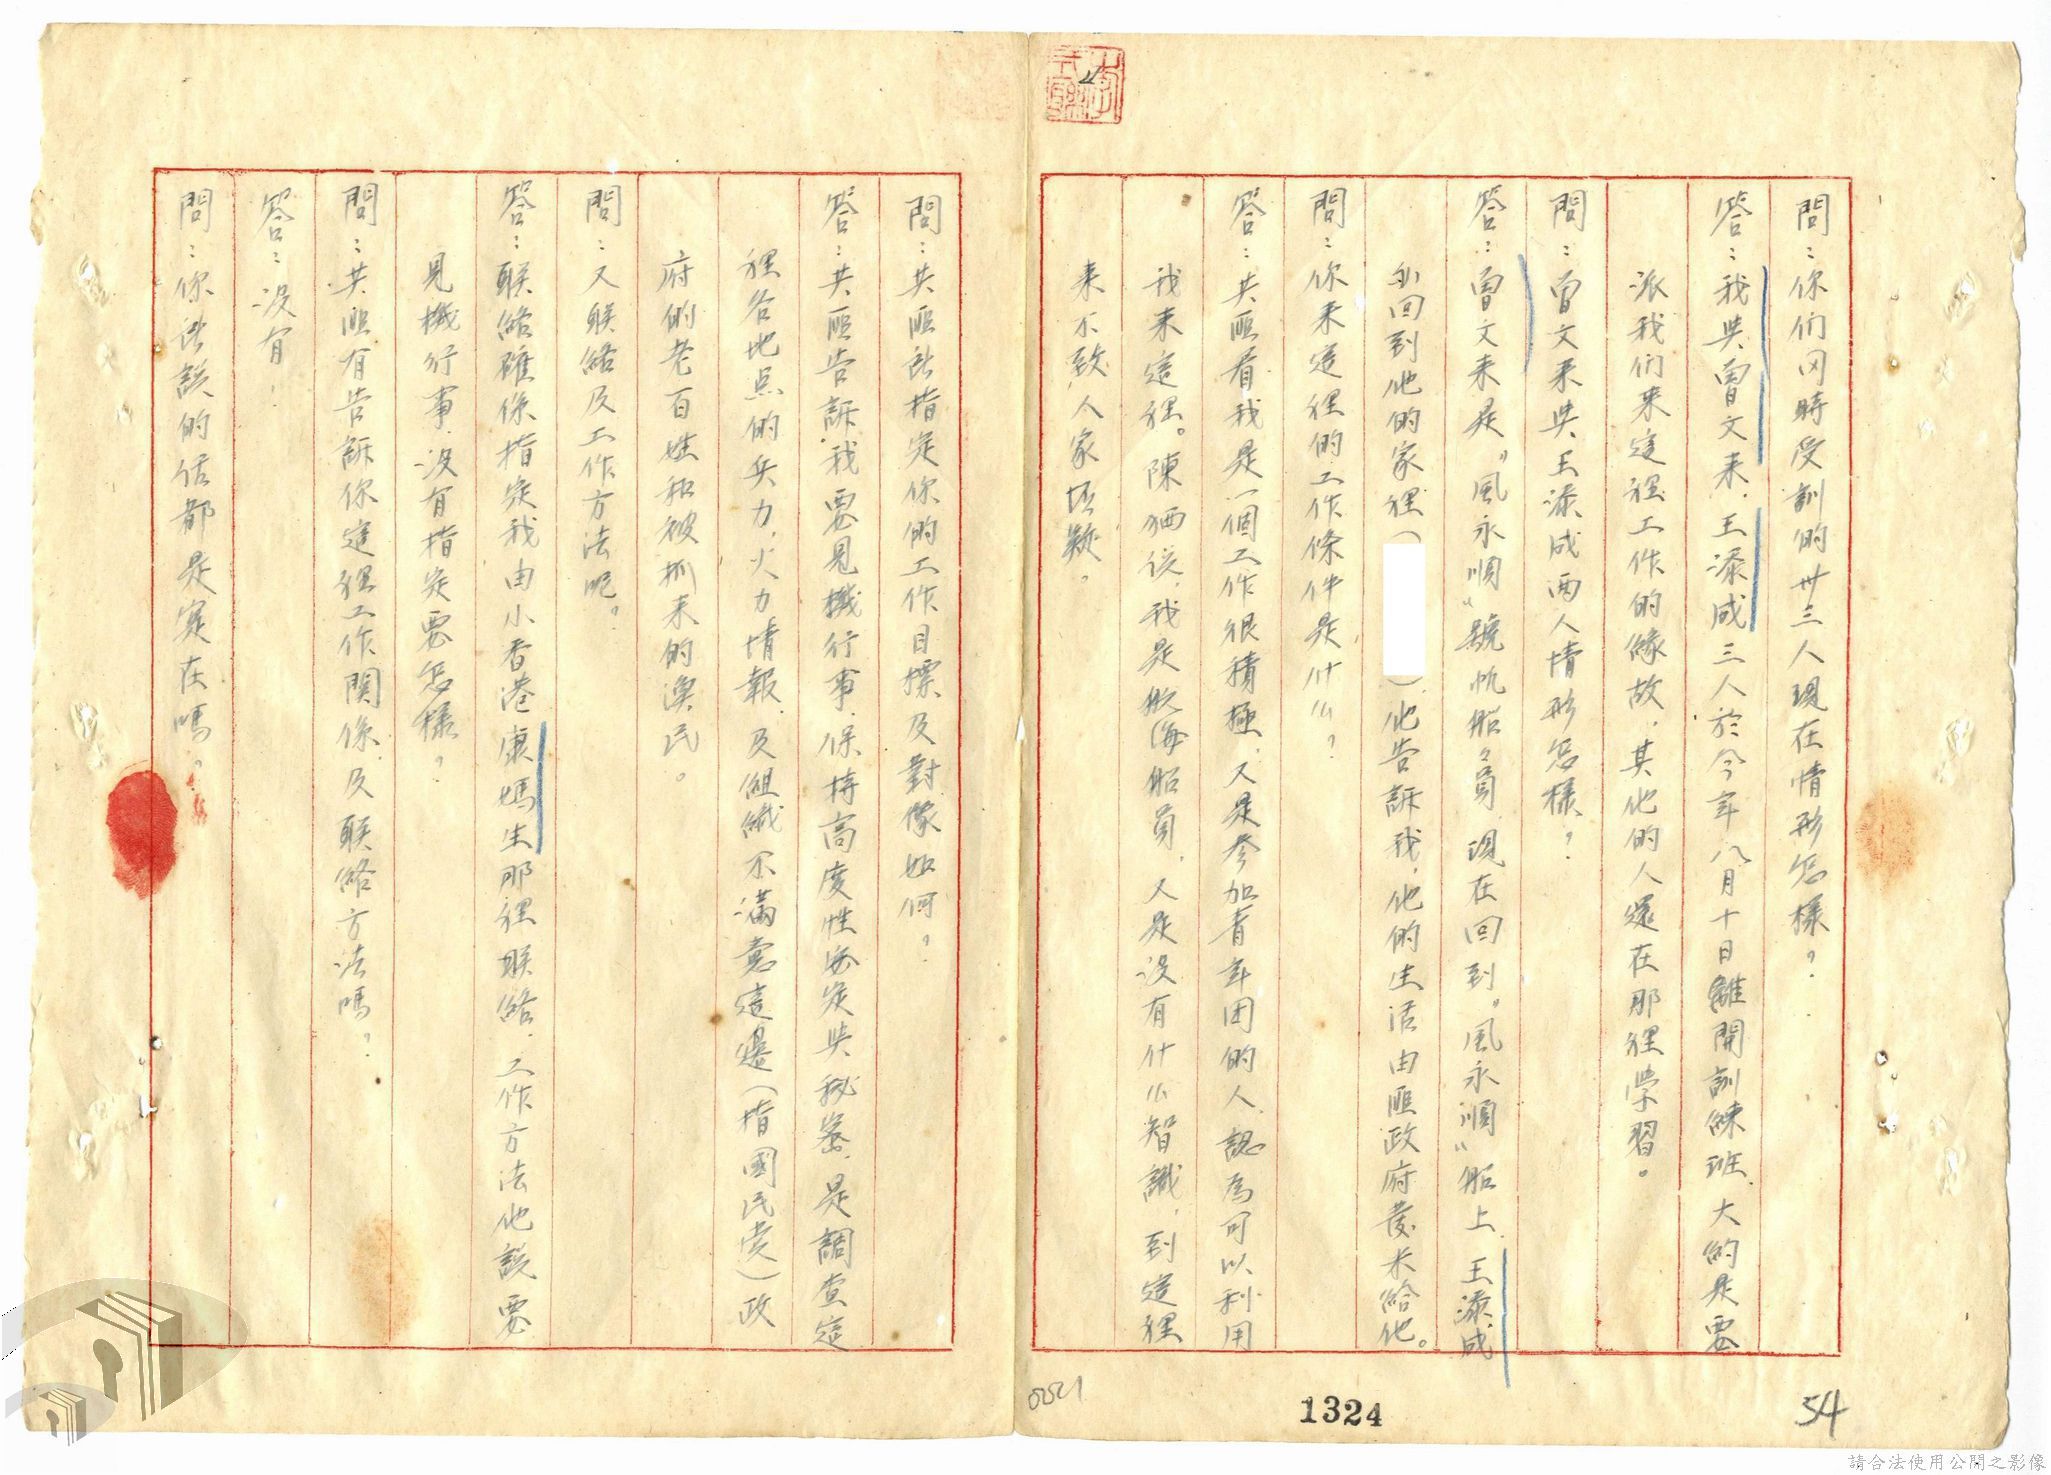 問：你们同時受訓的卅三人現在情形怎樣？
答：我與曾文来，王添成三人於今年八月十日離開訓練班，大約是要
派我们来這裡工作的緣故，其他的人還在那裡学習。
問：曾文来與王添成两人情形怎樣？
答：曾文来是〝風永順〞號帆船々員，現在回到〝風永順〞船上，王添成
則回到他的家裡（），他告訴我，他的生活由匪政府發米給他。
問：你来這裡的工作條件是什么？
答：共匪看我是一個工作很積極，又是参加青年团的人，認為可以利用
我来這裡。陳 ，我是航海船員，人是没有什么智識，到這裡
来不致人家 疑。
問：共匪所指定你的工作目標及對像如何？
答：共匪告訴我要見機行事，保持高度性安定與秘密，是調查這
裡各地点的兵力，火力情報，及組織不滿意這邊（指國民党）政
府的老百姓和被抓来的漁民。
問：又联絡及工作方法呢？
答：联絡 指定我由小香港康媽生那裡联絡，工作方法他説要
見機行事，没有指定要怎樣？
問：共匪有告訴你這裡工作関係及联絡方法嗎？
答：没有！
問：你所説的话都是实在嗎？
1324
54
請合法使用公開之影像